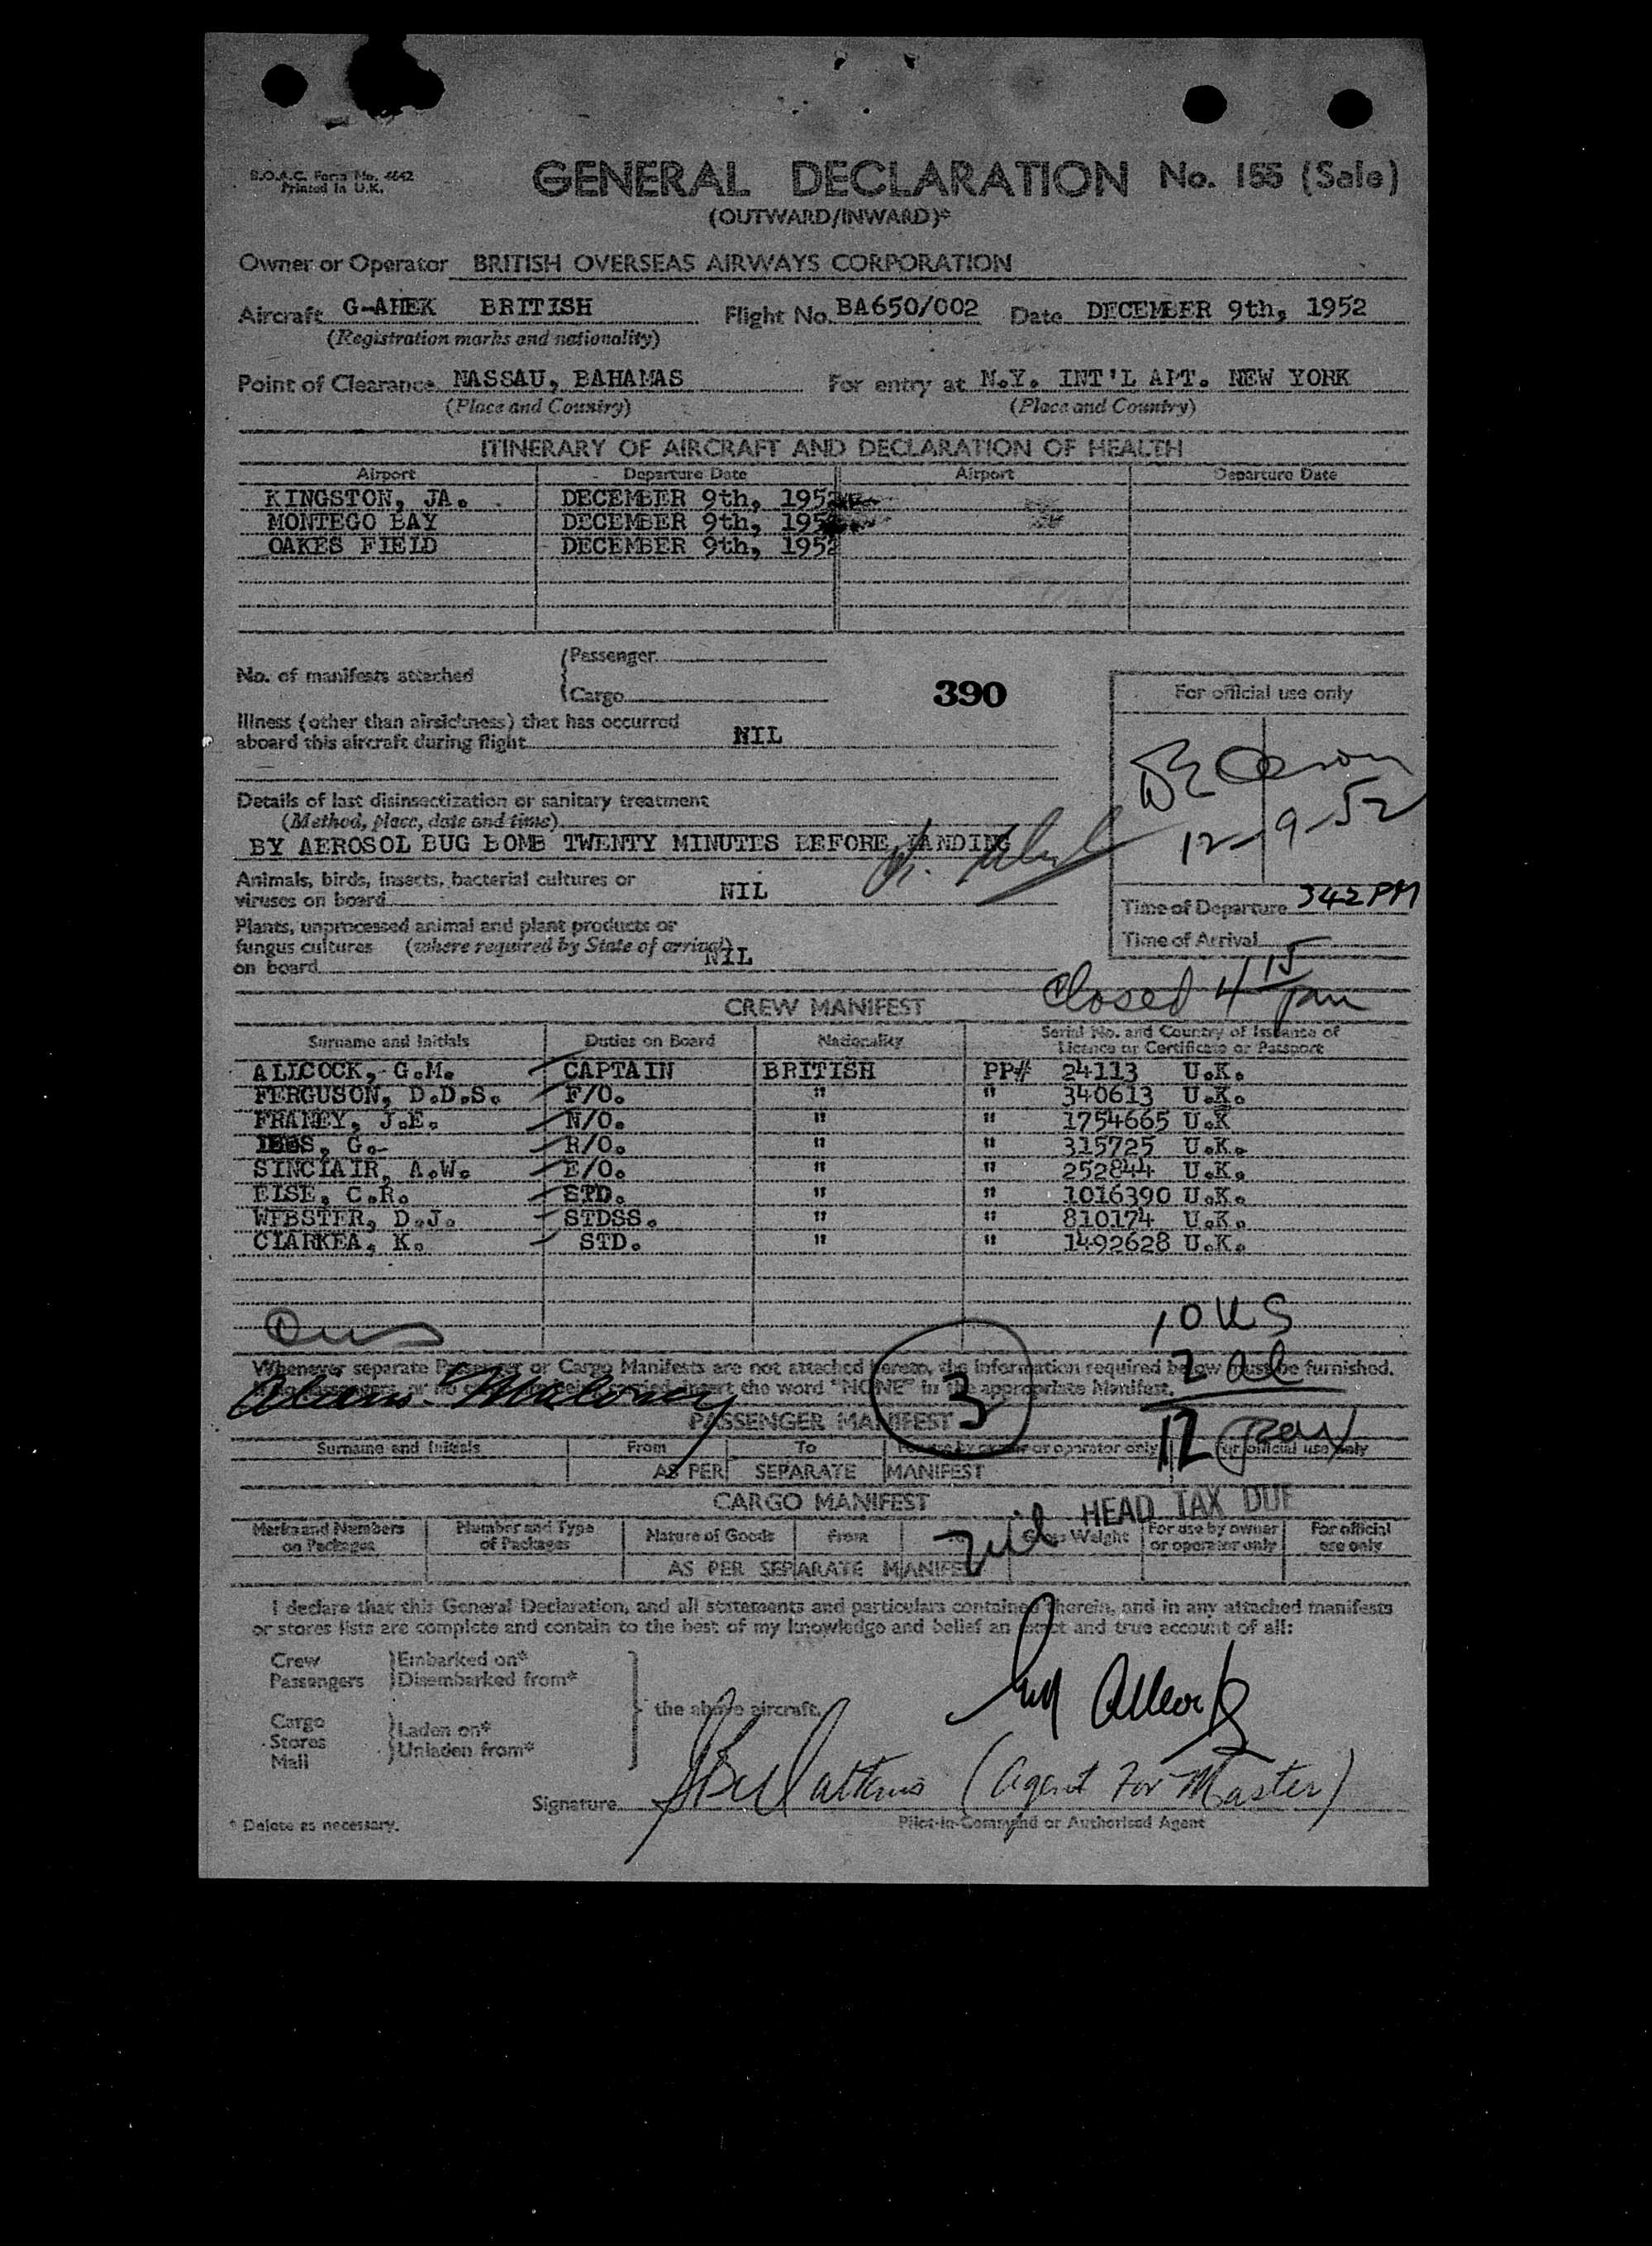 B.O.A.C. Form No. 4642
Printed in U.K.
GENERAL DECLARATION No. 155 (Sale)
(OUTWARD/INWARD)*
Owner or Operator BRITISH OVERSEAS AIRWAYS CORPORATION
Aircraft G-AHEK BRITISH Flight No. BA650/002 Date DECEMBER 9th, 1952
(Registration marks and nationality)
Point of Clearance NASSAU, BAHAMAS For entry at N.Y. INT'L APT. NEW YORK
(Place and Country) (Place and Country)
ITINERARY OF AIRCRAFT AND DECLARATION OF HEALTH
Airport Departure Date Airport Departure Date
KINGSTON, JA. DECEMBER 9th, 1952
MONTEGO BAY DECEMBER 9th, 1952
OAKES FIELD DECEMBER 9th, 1952
No. of manifests attached
Passenger
Cargo
390
For official use only
Illness (other than airsickness) that has occurred
aboard this aircraft during flight NIL
12-9-52
Details of last disinsectization or sanitary treatment
(Method, place, date and time)
BY AEROSOL BUG BOMB TWENTY MINUTES BEFORE LANDING
Animals, birds, insects, bacterial cultures or
viruses on board NIL
Time of Departure 342 PM
Plants, unprocessed animal and plant products or
fungus cultures (where required by State of arrival)
on board NIL
Time of Arrival
Closed 4 15 pm
CREW MANIFEST
Surname and Initials Duties on Board Nationality Serial No. and Country of Issuance of
Licence or Certificate or Passport
ALLCOCK, G.M. CAPTAIN BRITISH PP# 24113 U.K.
FERGUSON, D.D.S. F/O. " " 340613 U.K.
FRANEY, J.E. N/O. " " 1754665 U.K
G. R/O. " " 315725 U.K.
SINCLAIR, A.W. E/O. " " 252844 U.K.
ELSE, C.R. STD. " " 1016390 U.K.
WEBSTER, D.J. STDSS. " " 810174 U.K.
CLARKEA, K. STD. " " 1492628 U.K.
10 US
2 al
12 pax
3
Whenever separate Passenger or Cargo Manifests are not attached hereto, the information required below must be furnished.
If no passengers or no cargo are being carried, insert the word "NONE" in the appropriate Manifest.
PASSENGER MANIFEST
Surname and Initials From To For use by owner or operator only For official use only
AS PER SEPARATE MANIFEST
CARGO MANIFEST
HEAD TAX DUE
Marks and Numbers on Packages Number and Type of Packages Nature of Goods From Gross Weight For use by owner or operator only For official use only
AS PER SEPARATE MANIFEST
I declare that this General Declaration, and all statements and particulars contained therein, and in any attached manifests
or stores lists are complete and contain to the best of my knowledge and belief an exact and true account of all:
Crew
Passengers
Embarked on*
Disembarked from*
the above aircraft.
Cargo
Stores
Mail
Laden on*
Unladen from*
Signature (Agent For Master)
* Delete as necessary. Pilot-in-Command or Authorised Agent